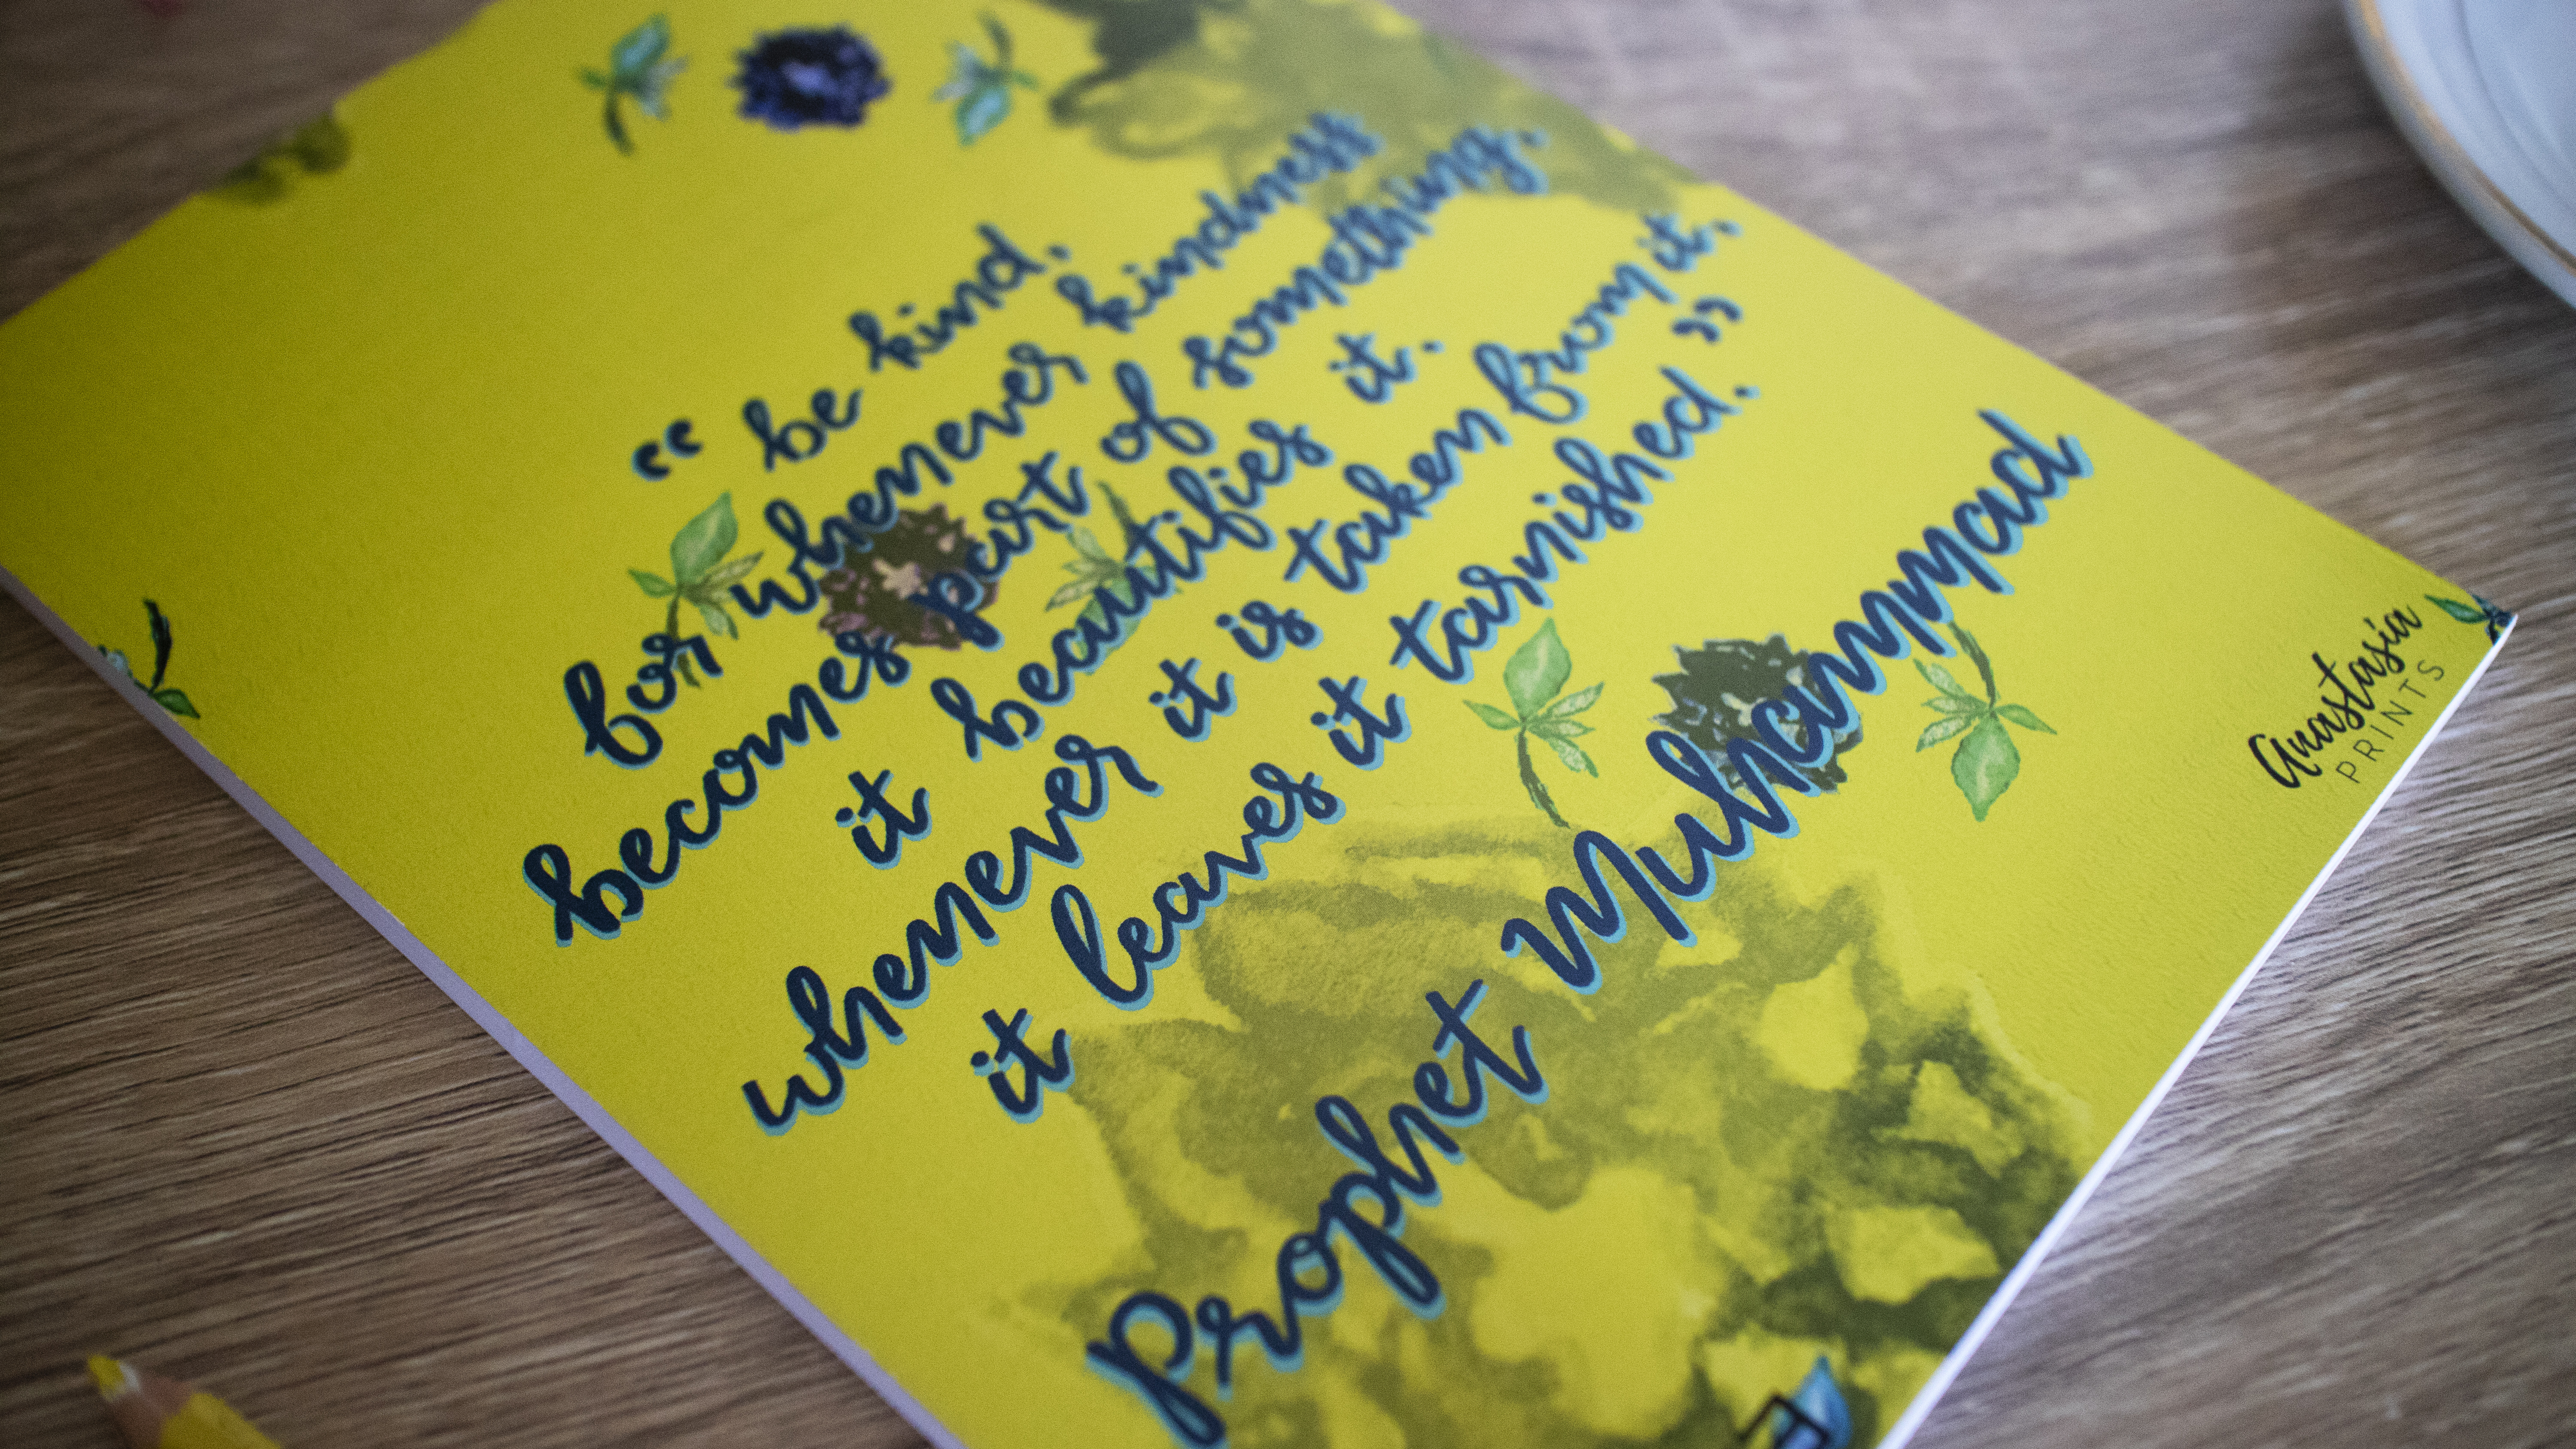 “ be kind,
for whenever kindness
becomes part of something,
it beautifies it.
whenever it is taken from it,
it leaves it tarnished.”
Prophet Muhammad
anastasia
PRINTS